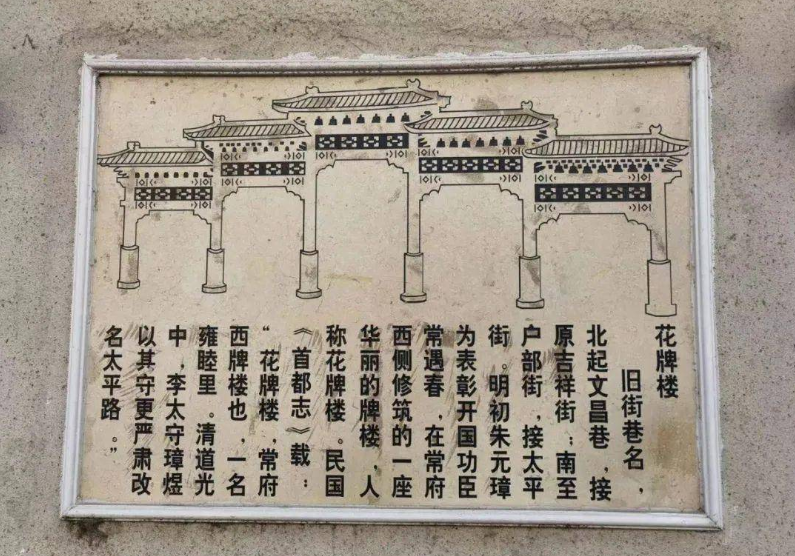 花牌楼
旧街巷名，
北起文昌巷，接
原吉祥街；南至
户部街，接太平
街。明初朱元璋
为表彰开国功臣
常遇春，在常府
西侧修筑的一座
华丽的牌楼，人
称花牌楼。民国
《首都志》载：
“花牌楼，常府
西牌楼也，一名
雍睦里。清道光
中，李太守璋煜
以其守更严肃改
名太平路。”